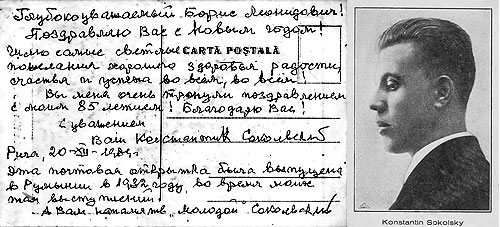 Глубокоуважаемый Борис Леонидович!
Поздравляю Вас с Новым годом!
Шлю самые светлые
CARTA POSTALA
пожелания хорошего здоровья радости,
счастья и успеха во всём, во всём!
Вы меня очень тронули поздравлением
с моим 85 летием! Благодарю Вас!
с уважением
Ваш Константин Сокольский
Рига 20-XII-
Эта почтовая открытка была выпущена
в Румынии в 1932 году, во время моих
там выступлений.
А Вам на память "Молодой Сокольский"
Konstantin Sokolsky